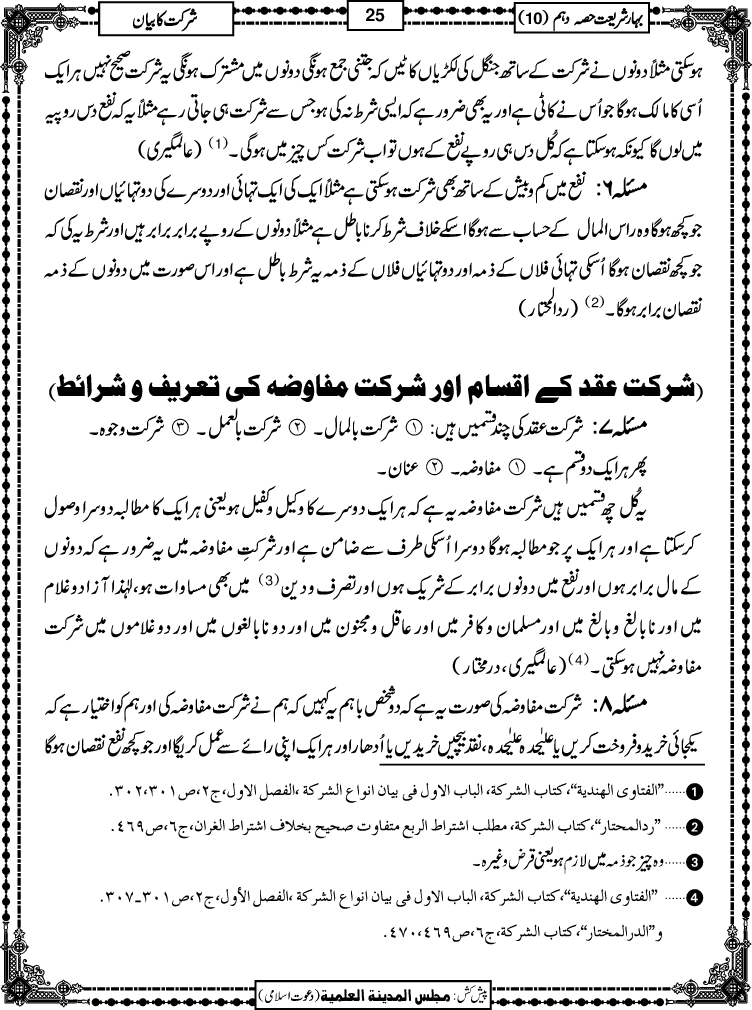 بہار شریعت حصہ دہم (10)
25
شرکت کا بیان
ہوسکتی مثلاً دونوں نے شرکت کے ساتھ جنگل کی لکڑیاں کاٹیں کہ جتنی جمع ہونگی دونوں میں مشترک ہونگی یہ شرکت صحیح نہیں ہر ایک
اُسی کا مالک ہوگا جو اُس نے کاٹی ہے اور یہ بھی ضرور ہے کہ ایسی شرط نہ کی ہو جس سے شرکت ہی جاتی رہے مثلاً یہ کہ نفع دس روپیہ
میں لوں گا کیونکہ ہوسکتا ہے کہ کُل دس ہی روپے نفع کے ہوں تو اب شرکت کس چیز میں ہوگی۔(1) (عالمگیری)
مسئلہ ۶: نفع میں کم و بیش کے ساتھ بھی شرکت ہوسکتی ہے مثلاً ایک کی ایک تہائی اور دوسرے کی دو تہائیاں اور نقصان
جو کچھ ہوگا وہ راس المال کے حساب سے ہوگا اسکے خلاف شرط کرنا باطل ہے مثلاً دونوں کے روپے برابر برابر ہیں اور شرط یہ کی کہ
جو کچھ نقصان ہوگا اُسکی تہائی فلاں کے ذمہ اور دو تہائیاں فلاں کے ذمہ یہ شرط باطل ہے اور اس صورت میں دونوں کے ذمہ
نقصان برابر ہوگا۔(2) (ردالمحتار)
(شرکت عقد کے اقسام اور شرکت مفاوضہ کی تعریف و شرائط)
مسئلہ ۷: شرکت عقد کی چند قسمیں ہیں: ① شرکت بالمال۔ ② شرکت بالعمل۔ ③ شرکت وجوہ۔
پھر ہر ایک دو قسم ہے۔ ① مفاوضہ۔ ② عنان۔
یہ کُل چھ قسمیں ہیں شرکت مفاوضہ یہ ہے کہ ہر ایک دوسرے کا وکیل و کفیل ہو یعنی ہر ایک کا مطالبہ دوسرا وصول
کرسکتا ہے اور ہر ایک پر جو مطالبہ ہوگا دوسرا اُسکی طرف سے ضامن ہے اور شرکتِ مفاوضہ میں یہ ضرور ہے کہ دونوں
کے مال برابر ہوں اور نفع میں دونوں برابر کے شریک ہوں اور تصرف و دین(3) میں بھی مساوات ہو، لہٰذا آزاد و غلام
میں اور نابالغ و بالغ میں اور مسلمان و کافر میں اور عاقل و مجنون میں اور دو نابالغوں میں اور دو غلاموں میں شرکت
مفاوضہ نہیں ہوسکتی۔(4) (عالمگیری، درمختار)
مسئلہ ۸: شرکت مفاوضہ کی صورت یہ ہے کہ دو شخص باہم یہ کہیں کہ ہم نے شرکت مفاوضہ کی اور ہم کو اختیار ہے کہ
یکجائی خرید و فروخت کریں یا علیٰحدہ علیٰحدہ، نقد بیچیں خریدیں یا اُدھار اور ہر ایک اپنی رائے سے عمل کریگا اور جو کچھ نفع نقصان ہوگا
❶......"الفتاوی الهندیة"، کتاب الشرکة، الباب الاول فی بیان انواع الشرکة ،الفصل الاول،ج۲،ص۳۰۱،۳۰۲.
❷...... "ردالمحتار"،کتاب الشرکة، مطلب اشتراط الربع متفاوت صحیح بخلاف اشتراط الغران،ج۶،ص۴۶۹.
❸......وہ چیز جو ذمہ میں لازم ہو یعنی قرض وغیرہ۔
❹...... "الفتاوی الهندیة"،کتاب الشرکة، الباب الاول فی بیان انواع الشرکة ،الفصل الأول،ج۲،ص۳۰۱ـ۳۰۷.
و"الدرالمختار"،کتاب الشرکة،ج۶،ص۴۶۹،۴۷۰.
پیش کش: مجلس المدینة العلمیة (دعوت اسلامی)